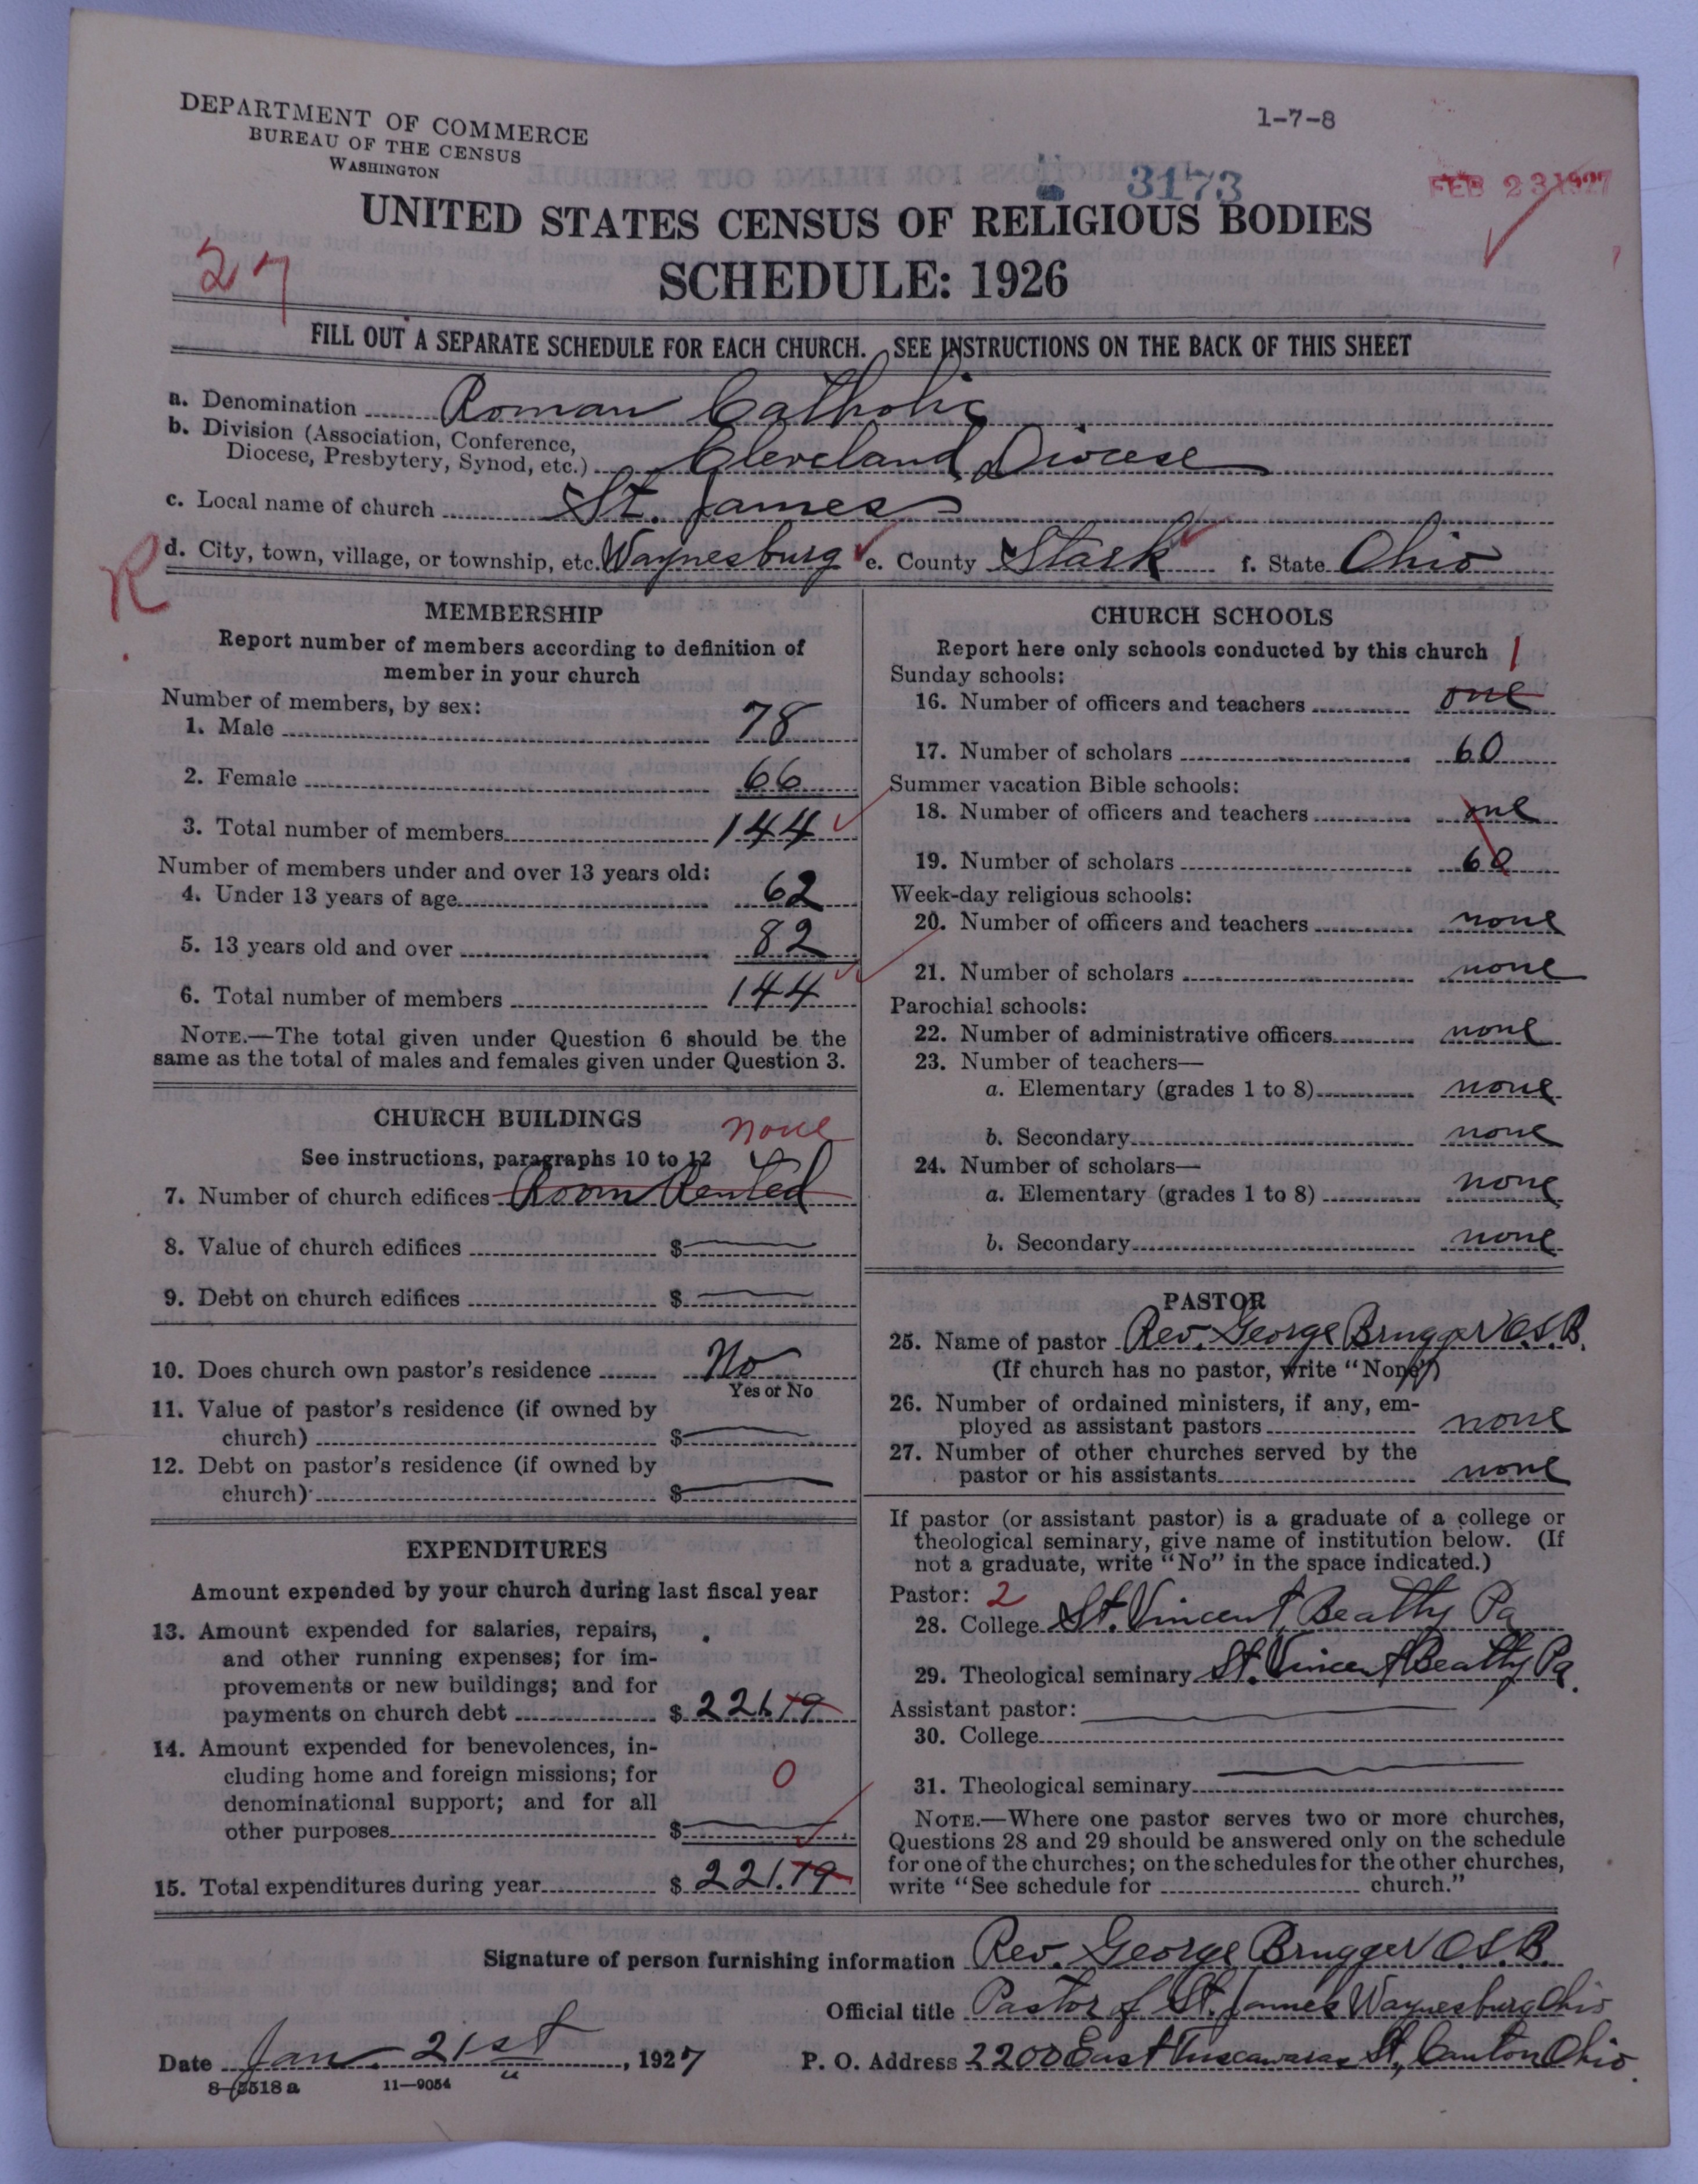 DEPARTMENT OF COMMERCE
BUREAU OF THE CENSUS
WASHINGTON
1-7-8
3173
FEB 23 1927
UNITED STATES CENSUS OF RELIGIOUS BODIES
27
SCHEDULE: 1926
FILL OUT A SEPARATE SCHEDULE FOR EACH CHURCH. SEE INSTRUCTIONS ON THE BACK OF THIS SHEET
a. Denomination Roman Catholic
b. Division (Association, Conference,
Diocese, Presbytery, Synod, etc.) Cleveland Diocese
c. Local name of church St. James
R
d. City, town, village, or township, etc. Waynesburg e. County Stark f. State Ohio
MEMBERSHIP
Report number of members according to definition of
member in your church
Number of members, by sex:
1. Male 78
2. Female 66
3. Total number of members 144
Number of members under and over 13 years old:
4. Under 13 years of age 62
5. 13 years old and over 82
6. Total number of members 144
NOTE.—The total given under Question 6 should be the
same as the total of males and females given under Question 3.
CHURCH BUILDINGS
none
See instructions, paragraphs 10 to 12
7. Number of church edifices Room Rented
8. Value of church edifices $
9. Debt on church edifices $
10. Does church own pastor's residence No
Yes or No
11. Value of pastor's residence (if owned by
church) $
12. Debt on pastor's residence (if owned by
church) $
EXPENDITURES
Amount expended by your church during last fiscal year
13. Amount expended for salaries, repairs,
and other running expenses; for im-
provements or new buildings; and for
payments on church debt $ 221.79
14. Amount expended for benevolences, in-
cluding home and foreign missions; for
0
denominational support; and for all
other purposes $
15. Total expenditures during year $ 221.79
CHURCH SCHOOLS
Report here only schools conducted by this church
1
Sunday schools:
16. Number of officers and teachers one
17. Number of scholars 60
Summer vacation Bible schools:
18. Number of officers and teachers one
19. Number of scholars 60
Week-day religious schools:
20. Number of officers and teachers none
21. Number of scholars none
Parochial schools:
22. Number of administrative officers none
23. Number of teachers—
a. Elementary (grades 1 to 8) none
b. Secondary none
24. Number of scholars—
a. Elementary (grades 1 to 8) none
b. Secondary none
PASTOR
25. Name of pastor Rev. George Brugger O.S.B.
(If church has no pastor, write "None")
26. Number of ordained ministers, if any, em-
ployed as assistant pastors none
27. Number of other churches served by the
pastor or his assistants none
If pastor (or assistant pastor) is a graduate of a college or
theological seminary, give name of institution below. (If
not a graduate, write "No" in the space indicated.)
Pastor: 2
28. College St. Vincent, Beatty Pa
29. Theological seminary St. Vincent Beatty Pa.
Assistant pastor:
30. College
31. Theological seminary
NOTE.—Where one pastor serves two or more churches,
Questions 28 and 29 should be answered only on the schedule
for one of the churches; on the schedules for the other churches,
write "See schedule for church."
Signature of person furnishing information Rev. George Brugger O.S.B.
Official title Pastor of St. James Waynesburg Ohio
Date Jan. 21st, 1927 P. O. Address 2200 East Tuscawaras St, Canton Ohio.
8-5518 a 11—9054